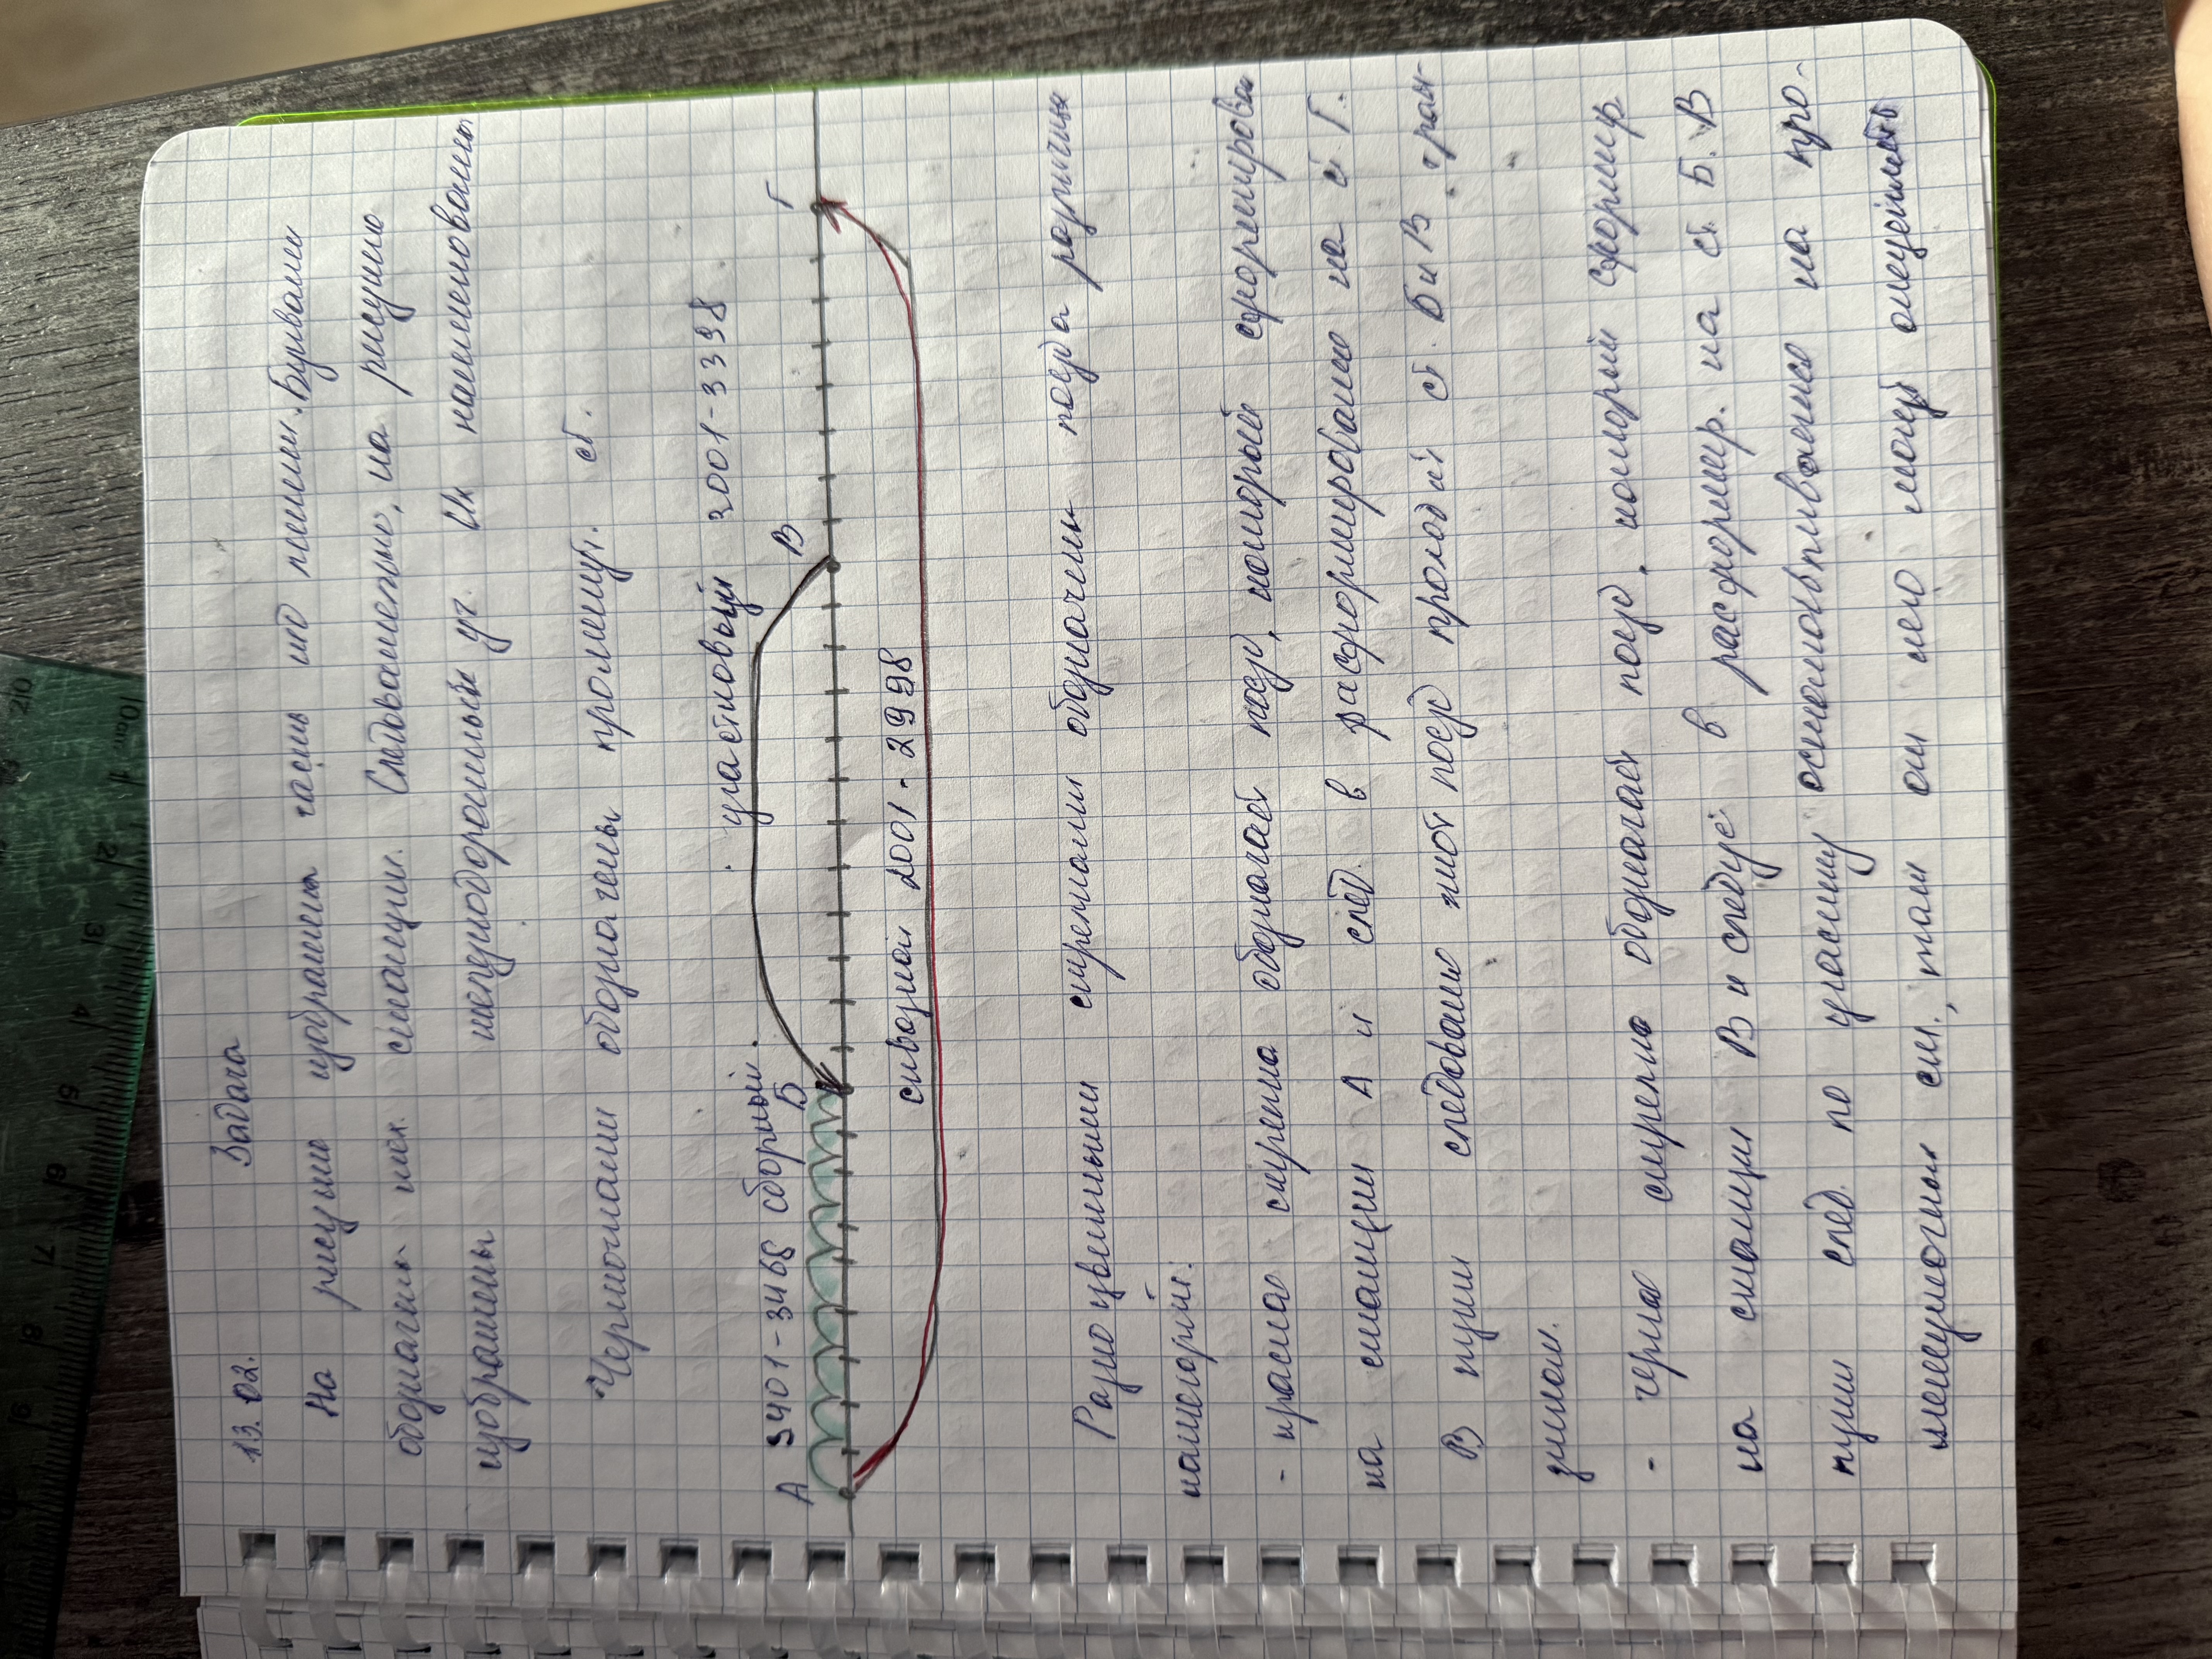 13.02. Задача
На рисунке изображена часть жд линии. Буквами
обозначены тех. станции. Следовательно, на рисунке
изображены междудорожные уч. Их наименования
Черточками обозначены промежут. ст.
участковый 3001-3398
А 3401-3468 сборный. Б В Г
сквозной 2001-2998
Разноцветными стрелками обозначены поезда различных
категорий:
- красная стрелка обозначает поезд, который сформирован
на станции А и след. в расформирование на ст Г.
В пути следования этот поезд проходит ст. Б и В тран-
зитом.
- черная стрелка обозначает поезд, который сформир
на станции В и следует в расформир. на ст Б. В
пути след по участку останавливаться на про-
межуточных ст., там он него могут отцеплять